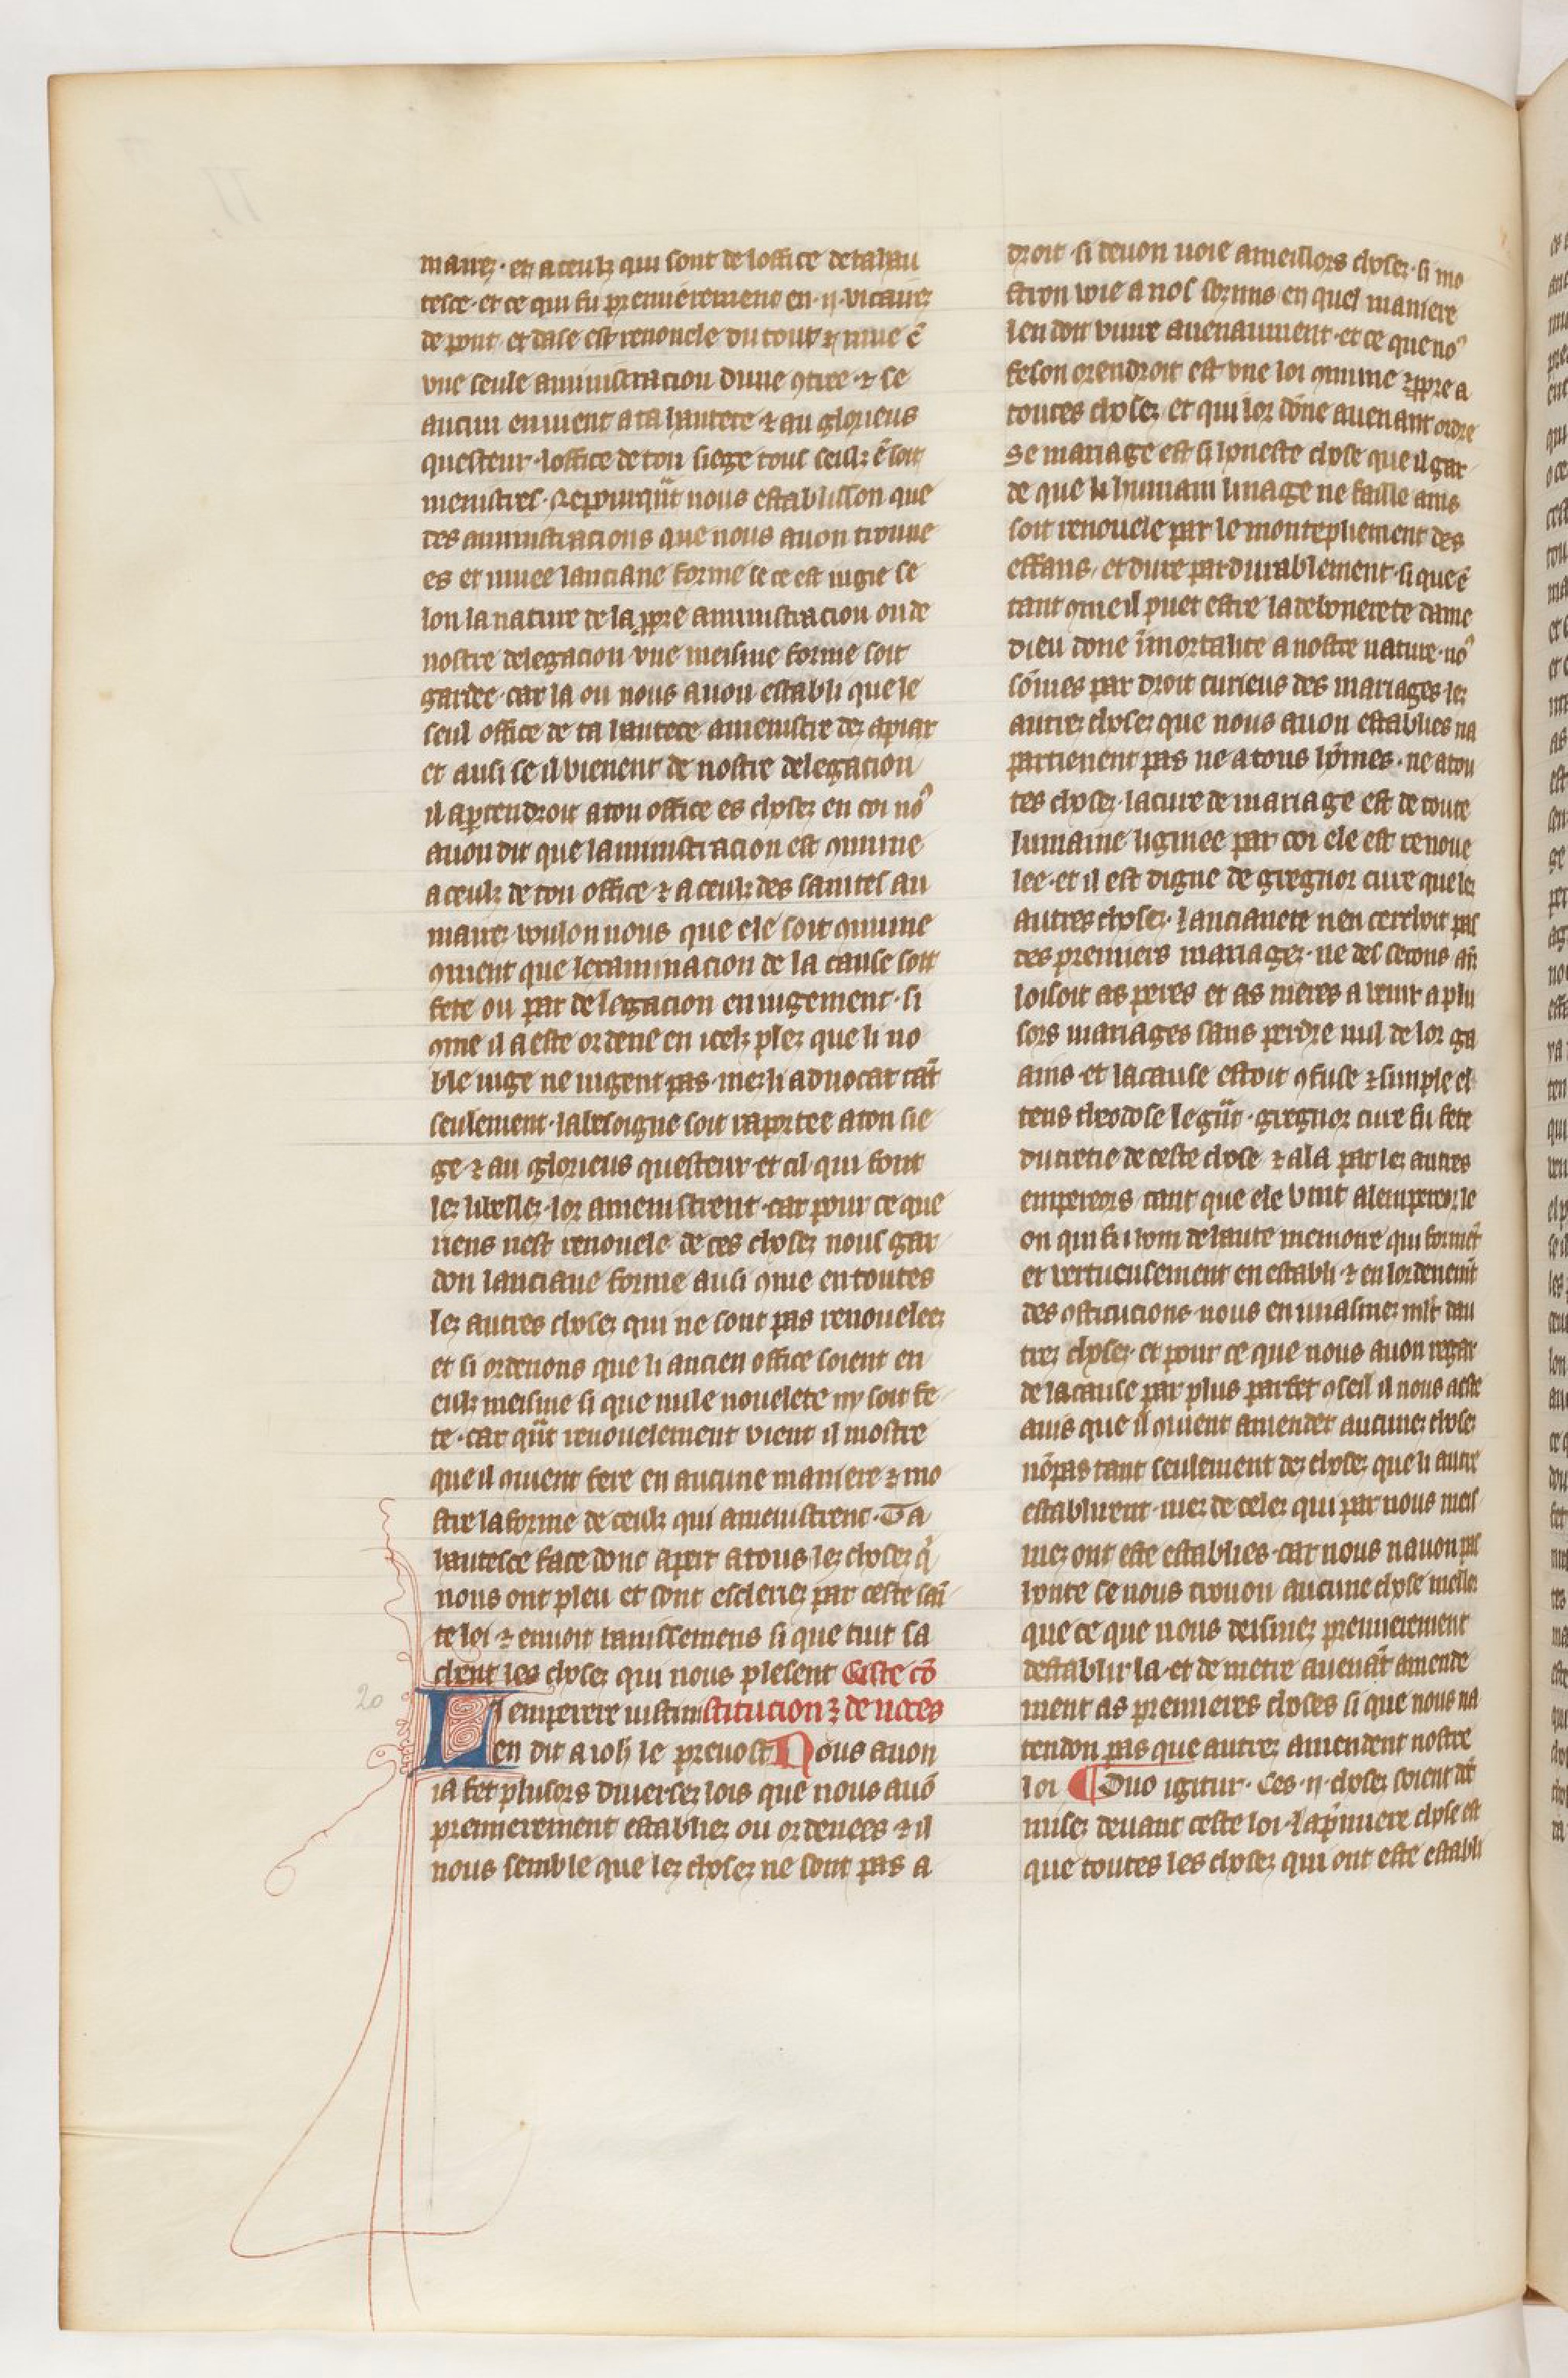 maire et a ceulz qui sont de loffice de ta hau
tesce et ce qui fu premierement en ii vicaires
de pont et dase est renouele du tout ⁊ mue ē
vne seule aministracion dune ꝯtree ⁊ se
aucun en vient a ta hautece ⁊ au glorieus
questeur loffice de ton siege tout seulz ē soit
menistres ⁊ e pourquāt nous establisson que
des aministracions que nous auon trouue
es et muee lanciane forme se ce est iugie se
lon la nature de la ꝓpre aministracion ou de
nostre delegacion vne meisme forme soit
gardee car la ou nous auon establi que le
seul office de ta hautece amenistre des apiax
et ausi se il vienent de nostre delegacion
il apertendroit a ton office es choses en coi noꝰ
auon dit que laministracion est ꝯmune
a ceulz de ton office ⁊ a ceulz des saintes au
maires voulon nous que ele soit ꝯmune
ꝯment que lexaminacion de la cause soit
fete ou par delegacion en iugement si
ꝯme il a este ordene en icelz ples que li no
ble iuge ne iugent pas mes li aduocat tāt
seulement la besoigne soit raportee a ton sie
ge ⁊ au glorieus questeur et cil qui font
les libelles lor amenistrent car pour ce que
riens nest renouele de ces choses nous gar
don lanciane forme ausi ꝯme en toutes
les autres choses qui ne sont pas renouelees
et si ordenons que li ancien office soient en
eulz meisme si que nule nouelete ny soit fe
te car quāt renouelement vient il mostre
que il ꝯuient fere en aucune maniere ⁊ mo
stre la forme de ceulz qui amenistrent Ta
hautesce face donc apert a tous les choses q̄
nous ont pleu et sont escleries par ceste sai
te loi ⁊ enuoit banissemens si que tuit sa
chent les choses qui nous plesent Ceste cō
Lemperere iustin stitucion ⁊ de noces
en dit a ioh le preuost Nous auon
ia fet plusors diuerses lois que nous auō
premierement establies ou ordenees ⁊ il
nous semble que les choses ne sont pas a
droit si deuon uoie a meillors choses si mo
stron voie a nos sozmis en quel maniere
len doit viure auenaument et ce que noꝰ
feson orendroit est vne loi ꝯmune ⁊ ꝓpre a
toutes choses et qui lor dōne auenant ordre
Se mariage est si honeste chose que il gar
de que li humain linage ne faille ains
soit renouele par le montepliement des
effans et dure pardurablement si que ē
tant ꝯme il puet estre la debonerete dame
dieu done īmortalite a nostre nature noꝰ
sōmes par droit curieus des mariages les
autres choses que nous auon establies na
partienent pas ne a tous hōmes ne a tou
tes choses la cure de mariage est de toute
humaine ligniee par coi ele est renoue
lee et il est digne de gregnor cure que les
autres choses lancianete nen cerchoit pas
des premiers mariages ne des secons aī
loisoit as peres et as meres a venir a plu
sors mariages sans perdre nul de lor ga
ains et la cause estoit ꝯfuse ⁊ simple el
tens theodose le gāt gregnor cure fu fete
du cretie de ceste chose ⁊ ala par les autres
empereors tant que ele vint a lempereor le
on qui fu hom de haute memoire qui formēt
et vertueusement en establi ⁊ en lordenemēt
des ꝯstitucions nous en muasmes mlt dau
tres choses et pour ce que nous auon regar
de la cause par plus parfet ꝯseil il nous a este
auis que il ꝯuient amender aucunes choses
nōpas tant seulement des choses que li autre
establirent mes de celes qui par nous meis
mes ont este establies car nous nauon pas
honte se nous trouon aucune chose mellor
que ce que nous deismes premierement
destablir la et de metre auenāt amende
ment as premieres choses si que nous na
tendon pas que autres amendent nostre
loi ¶ Duo igitur Ces ii choses soient dit
mises deuant ceste loi La pmiere chose est
que toutes les choses qui ont este establi
20